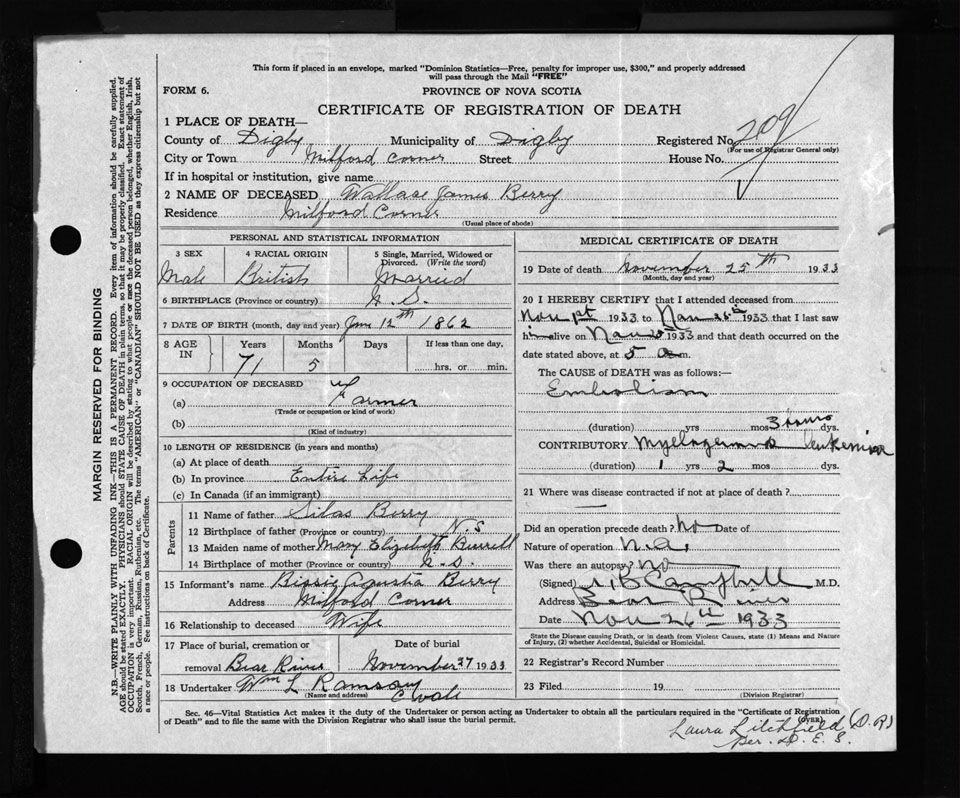 This form if placed in an envelope, marked "Dominion Statistics—Free, penalty for improper use, $300," and properly addressed
will pass through the Mail "FREE"
FORM 6.
PROVINCE OF NOVA SCOTIA
CERTIFICATE OF REGISTRATION OF DEATH
1 PLACE OF DEATH—
County of Digby Municipality of Digby Registered No. 209
(For use of Registrar General only)
City or Town Milford Corner Street House No.
If in hospital or institution, give name
2 NAME OF DECEASED Wallace James Berry
Residence Milford Corner
(Usual place of abode)
PERSONAL AND STATISTICAL INFORMATION
3 SEX 4 RACIAL ORIGIN 5 Single, Married, Widowed or
Divorced. (Write the word)
Male British Married
6 BIRTHPLACE (Province or country) N.S.
7 DATE OF BIRTH (month, day and year) 12th 1862
8 AGE IN Years Months Days If less than one day,
71 5 hrs. or min.
9 OCCUPATION OF DECEASED
(a) Farmer
(Trade or occupation or kind of work)
(b)
(Kind of industry)
10 LENGTH OF RESIDENCE (in years and months)
(a) At place of death
(b) In province Entire Life
(c) In Canada (if an immigrant)
Parents
11 Name of father Silas Berry
12 Birthplace of father (Province or country) N.S
13 Maiden name of mother Mary Elizabeth Burrell
14 Birthplace of mother (Province or country) N.S.
15 Informant's name Bessie Agusta Berry
Address Milford Corner
16 Relationship to deceased Wife
17 Place of burial, cremation or Date of burial
removal Bear River November 27 1933
18 Undertaker Wm L Ramsay
(Name and address)
MEDICAL CERTIFICATE OF DEATH
19 Date of death November 25th 1933
(Month, day and year)
20 I HEREBY CERTIFY that I attended deceased from
1933 to Nov 1933 that I last saw
him alive on Nov 1933 and that death occurred on the
date stated above, at 5 m.
The CAUSE OF DEATH was as follows:—
Embolism
(duration) yrs mos 3 hours dys.
CONTRIBUTORY Myelogenous leukemia
(duration) 1 yrs 2 mos dys.
21 Where was disease contracted if not at place of death?
Did an operation precede death? No Date of
Nature of operation n.a.
Was there an autopsy? No
(Signed) Campbell M.D.
Address Bear River
Date Nov 26th 1933
State the Disease causing Death, or in death from Violent Causes, state (1) Means and Nature
of Injury, (2) whether Accidental, Suicidal or Homicidal.
22 Registrar's Record Number
23 Filed 19
(Division Registrar)
Sec. 46—Vital Statistics Act makes it the duty of the Undertaker or person acting as Undertaker to obtain all the particulars required in the "Certificate of Registration
of Death" and to file the same with the Division Registrar who shall issue the burial permit. (OVER)
Laura Litchfield (D.R)
Per. D. E. S.
MARGIN RESERVED FOR BINDING
N.B.—WRITE PLAINLY WITH UNFADING INK—THIS IS A PERMANENT RECORD. Every item of information should be carefully supplied.
AGE should be stated EXACTLY. PHYSICIANS should STATE CAUSE OF DEATH in plain terms, so that it may be properly classified. Exact statement of
OCCUPATION is very important. RACIAL ORIGIN will be described by stating to what people or race the deceased person belonged, whether English, Irish,
Scotch, French, German, Russian, Ruthenian, etc. The terms "AMERICAN" or "CANADIAN" SHOULD NOT BE USED as they express citizenship but not
a race or people. See instructions on back of Certificate.